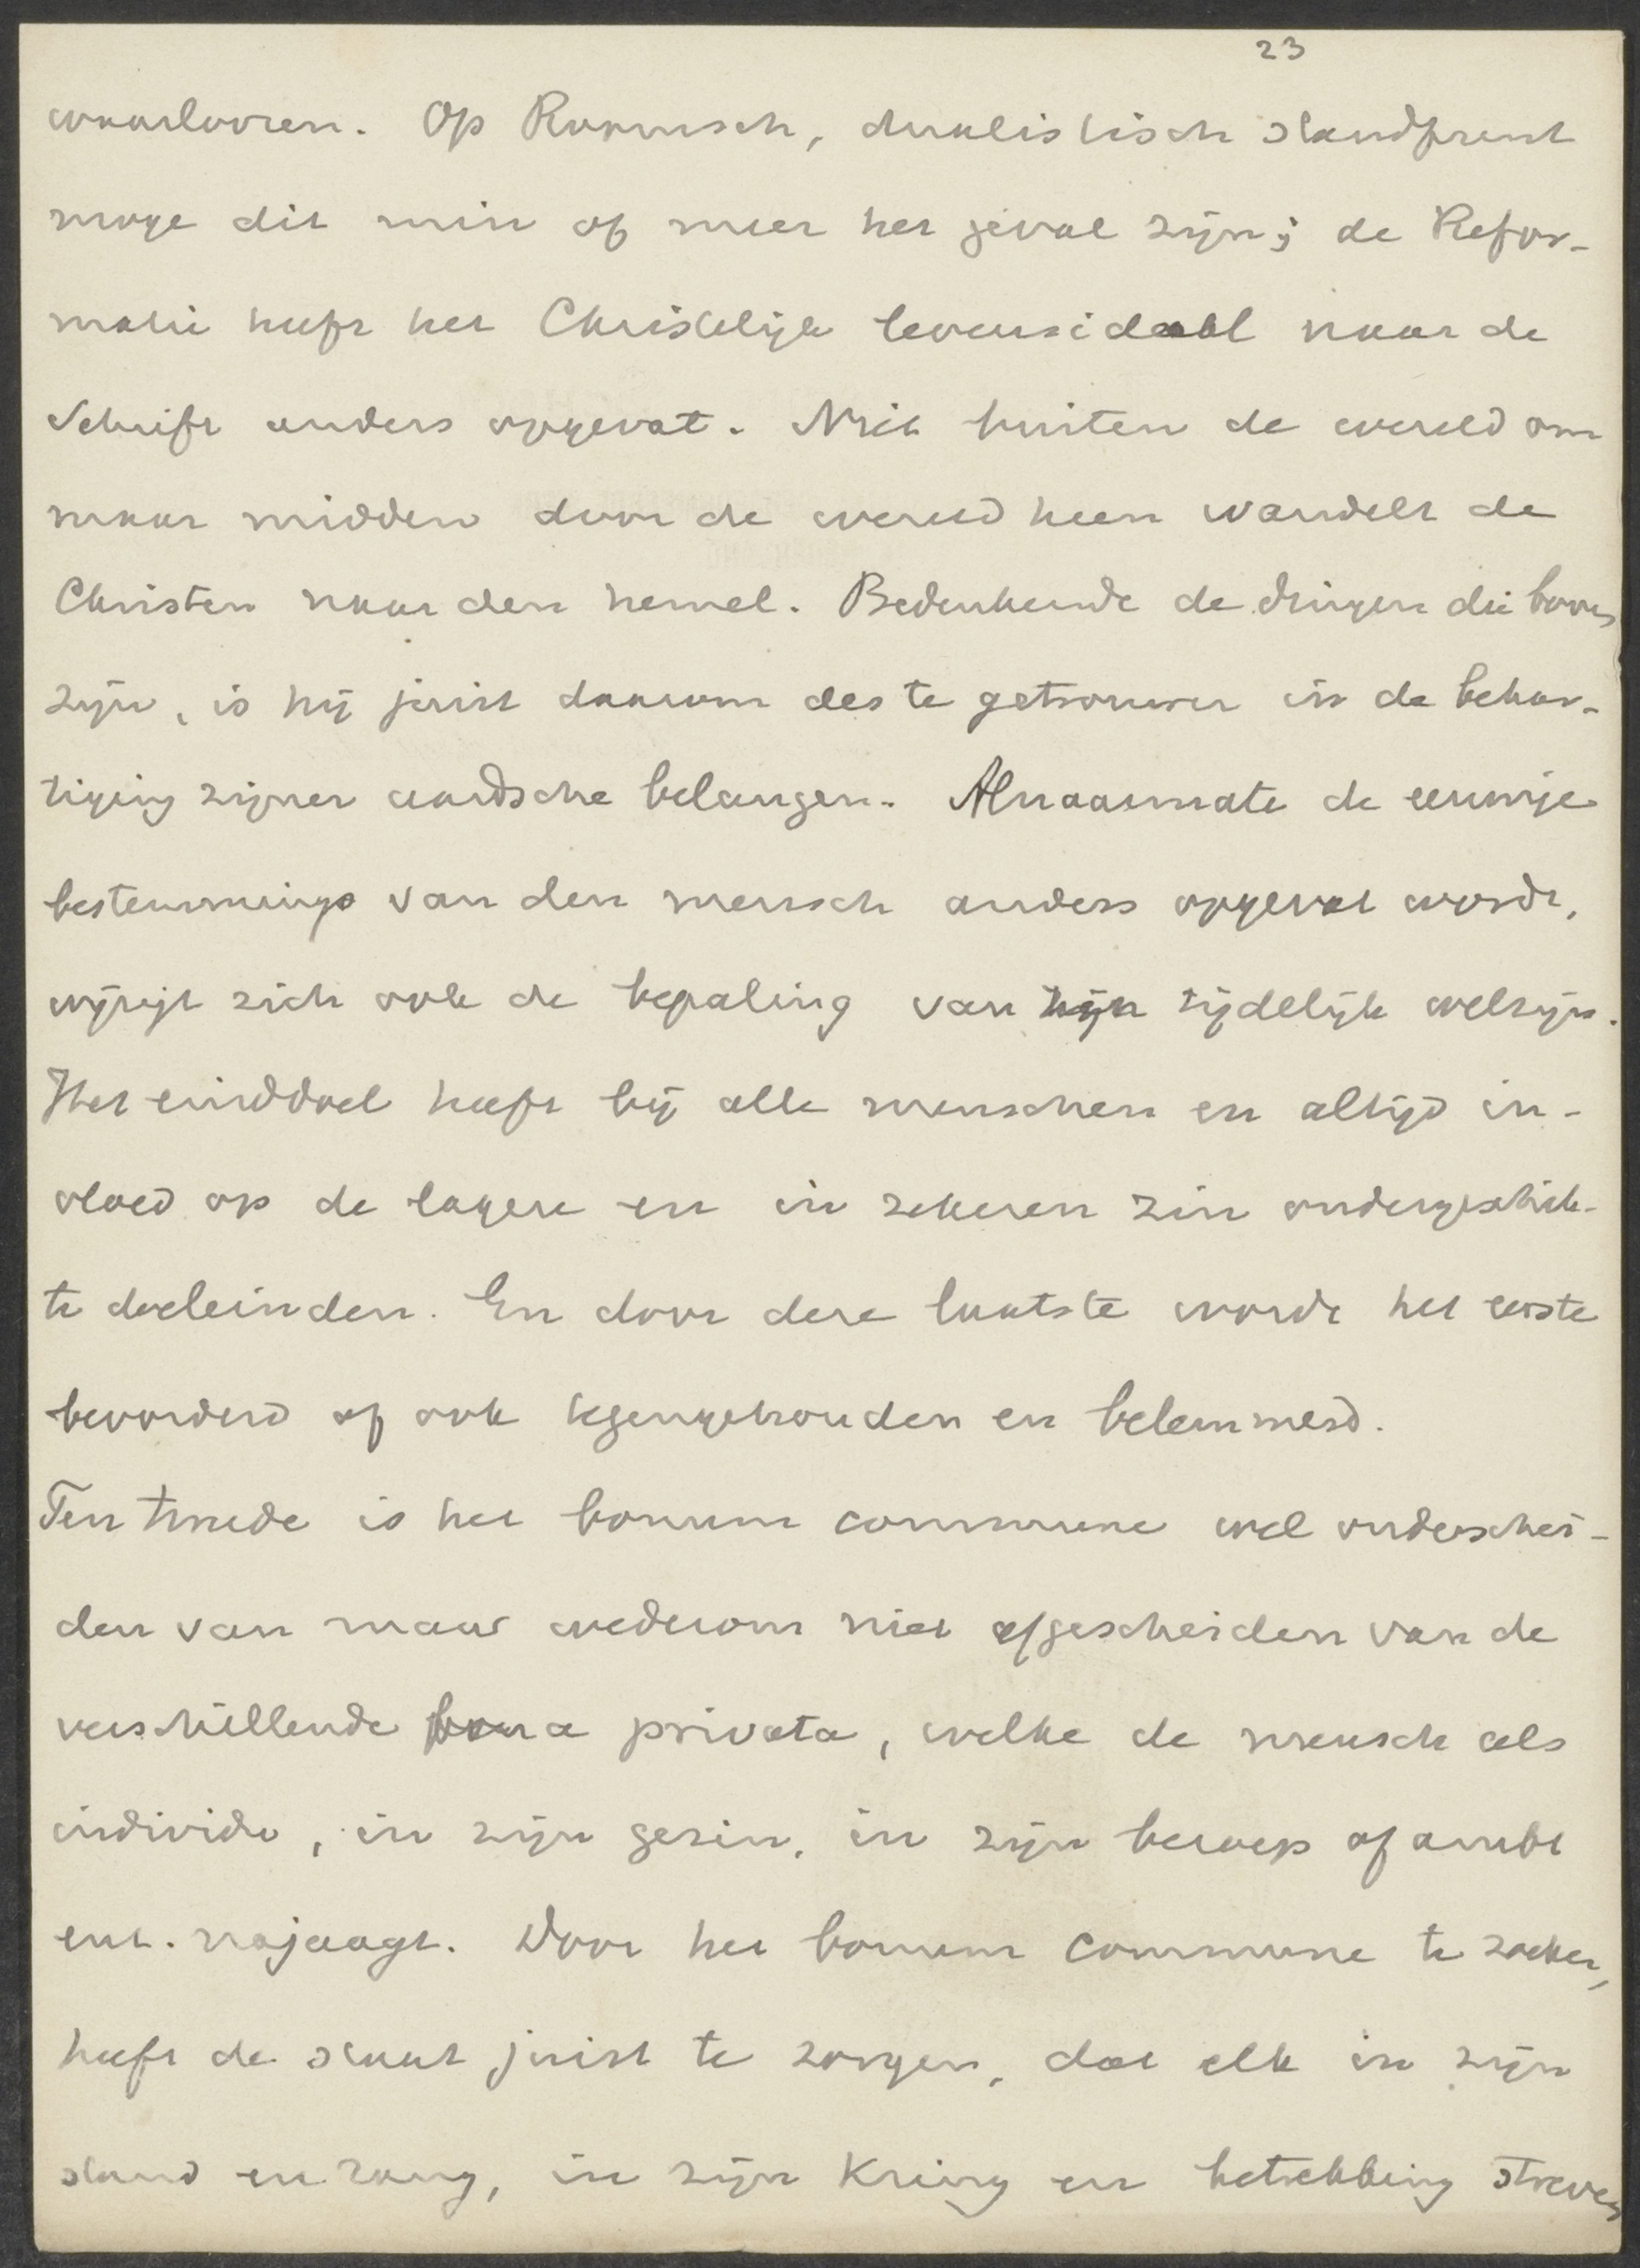 23
waarloozen. Op Roomsch, dualistisch standpunt
moge dit min of meer het geval zijn; de Refor-
matie heeft het Christelijk levensideaal naar de
Schrift anders opgevat. Niet buiten de wereld om
maar midden door de wereld heen wandelt de
Christen naar den hemel. Bedenkende de dingen die boven
zijn, is hij juist daarom des te getrouwer in de behar-
tiging zijner aardsche belangen. Alnaarmate de eeuwige
bestemming van den mensch anders opgevat wordt,
wijzigt zich ook de bepaling van zijn tijdelijk welzijn.
Het einddoel heeft bij alle menschen en altijd in-
vloed op de lagere en in zekeren zin ondergeschik-
te doeleinden. En door deze laatste wordt het eerste
bevorderd of ook tegengehouden en belemmerd.
Ten tweede is het bonum commune wel onderschei-
den van maar wederom niet afgescheiden van de
verschillende bona privata, welke de mensch als
individu, in zijn gezin, in zijn beroep of ambt
enz. najaagt. Door het bonum commune te zoeken,
heeft de staat juist te zorgen, dat elk in zijn
stand en rang, in zijn kring en betrekking streven